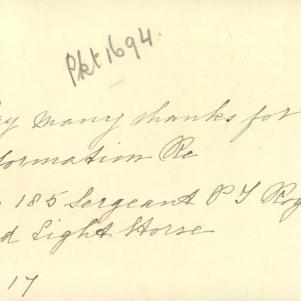 Pkt 1694.
many thanks for
formation Re
185 Sergeant P T Rog
d Light Horse
17